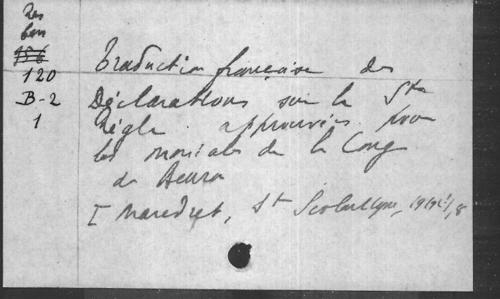 Res
120
B-2
1
Traduction française des
Déclarations sur la Ste
Règle approuvées pour
les moniales de la Cong
de Beuron
I Maredret, St Scholastique,